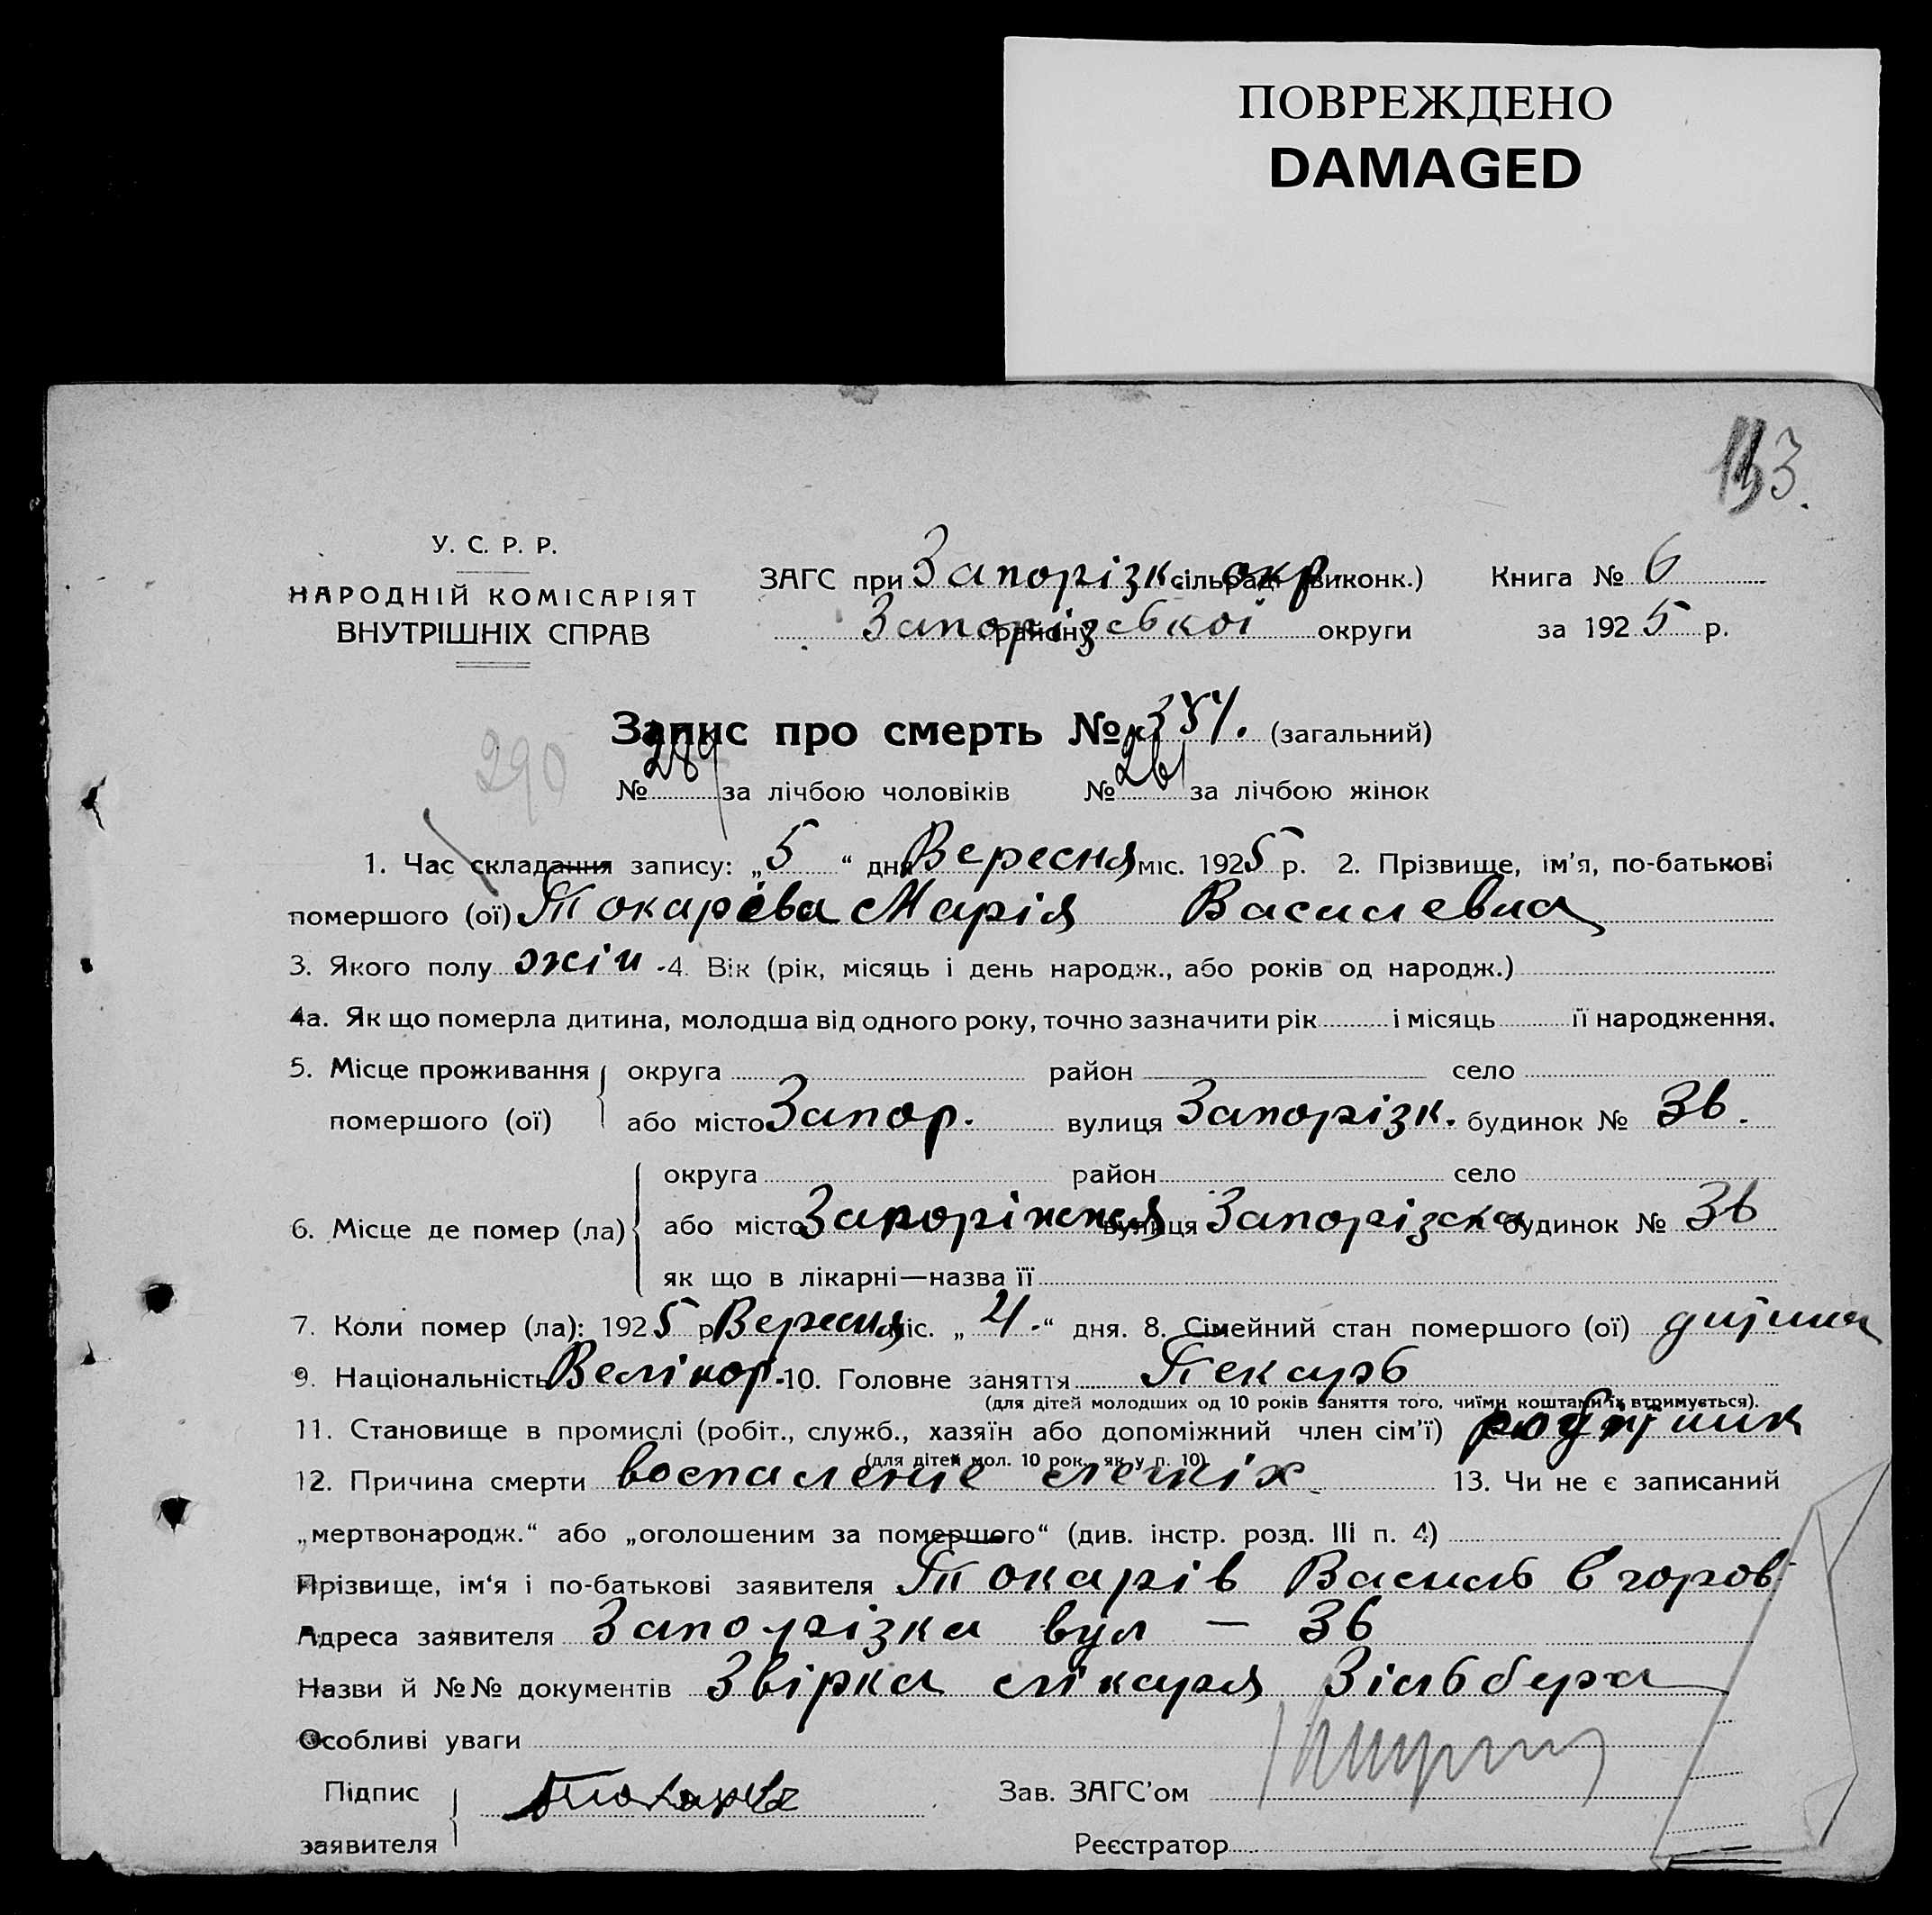 ПОВРЕЖДЕНО
DAMAGED
У. С. Р. Р.
НАРОДНІЙ КОМІСАРІЯТ
ВНУТРІШНІХ СПРАВ
ЗАГС при Запорізк. окр. сільради (виконк.)
Запорізської району округи
Книга № 6
за 1925 р.
Запис про смерть № (загальний)
290
№ 289 за лічбою чоловіків № 261 за лічбою жінок
1. Час складання запису: „5“ дня Вересня міс. 1925 р. 2. Прізвище, ім’я, по-батькові
помершого (ої) Токарева Марія Василевна
3. Якого полу жін - 4. Вік (рік, місяць і день народж., або років од народж.)
4а. Як що померла дитина, молодша від одного року, точно зазначити рік і місяць її народження.
5. Місце проживання округа район село
помершого (ої) або місто Запор. вулиця Запорізк. будинок № 36.
округа район село
6. Місце де помер (ла) або місто Запоріжжя вулиця Запорізска будинок № 36
як що в лікарні—назва її
7. Коли помер (ла): 1925 р. Вересня міс. „4.“ дня. 8. Сімейний стан помершого (ої) дитина
9. Національність Велікор. 10. Головне заняття Пекарь
(для дітей молодших од 10 років заняття того, чиїми коштами їх втримується).
11. Становище в промислі (робіт., служб., хазяїн або допоміжний член сім’ї) робітник
(для дітей мол. 10 рок., як у п. 10)
12. Причина смерти воспаленіе легкіх 13. Чи не є записаний
„мертвонародж.“ або „оголошеним за помершого“ (див. інстр. розд. III п. 4)
Прізвище, ім‘я і по-батькові заявителя Токарів Василь Єгоров.
Адреса заявителя Запорізка вул — 36
Назви й №№ документів Звірка лікаря Зільберга
Особливі уваги
Підпис
заявителя Токарев
Зав. ЗАГС’ом
Реєстратор